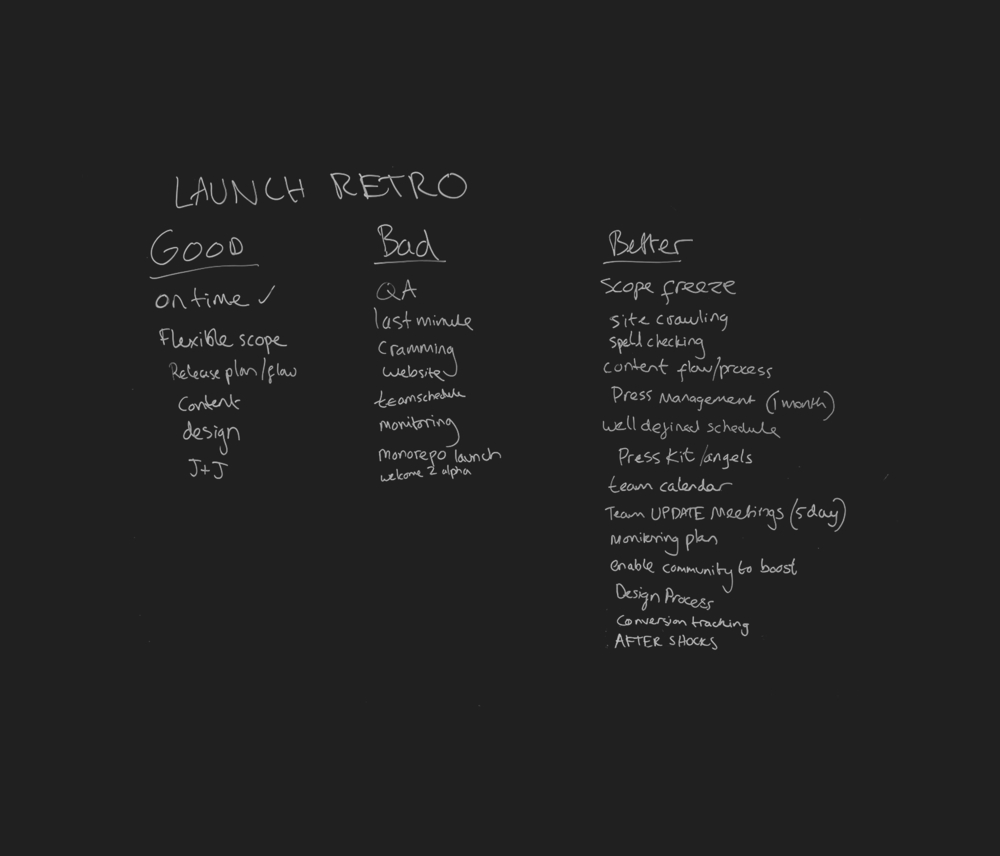 LAUNCH RETRO
GOOD
on time ✓
Flexible scope
Release plan/flow
Content
design
J+J
Bad
QA
last minute
Cramming
website
team schedule
monitoring
monorepo launch
welcome 2 alpha
Better
Scope freeze
site crawling
spell checking
content flow/process
Press Management (1 month)
well defined schedule
Press Kit/angels
team calendar
Team UPDATE Meetings (5 day)
Monitoring plan
enable community to boost
Design Process
Conversion tracking
AFTER SHOCKS